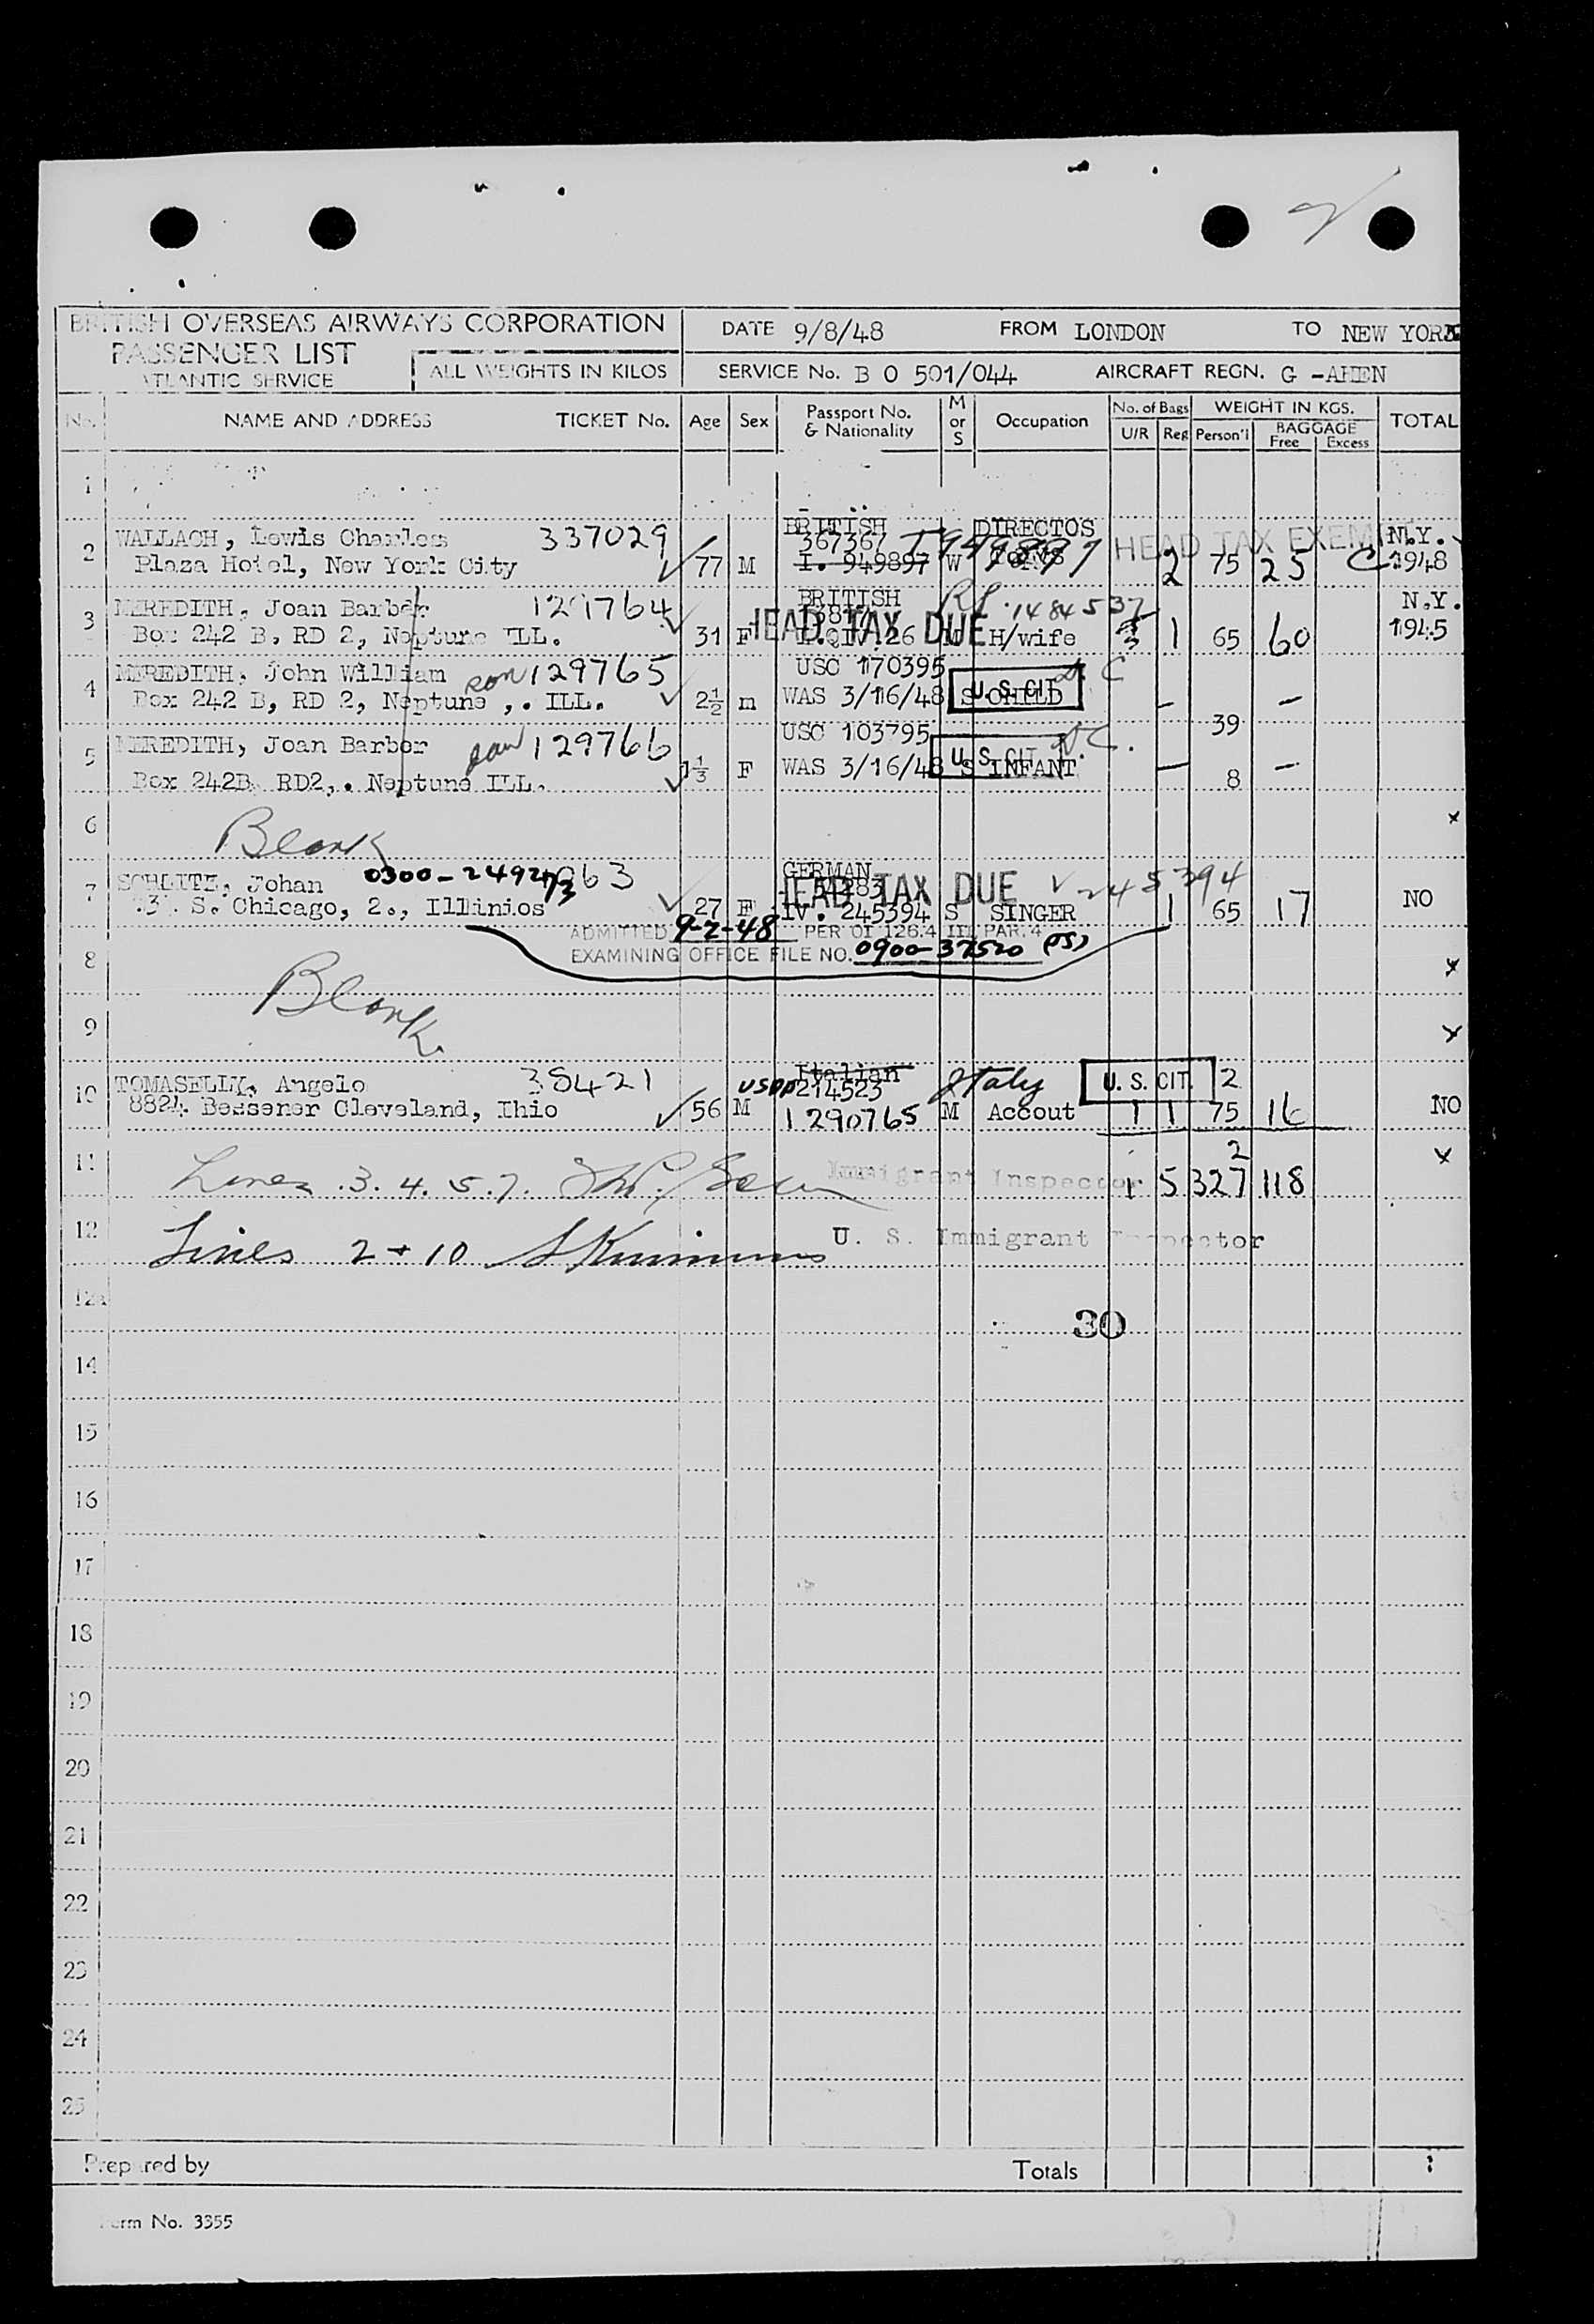 BRITISH OVERSEAS AIRWAYS CORPORATION
PASSENGER LIST
ATLANTIC SERVICE
ALL WEIGHTS IN KILOS
DATE 9/8/48 FROM LONDON TO NEW YORK
SERVICE No. B O 501/044 AIRCRAFT REGN. G -AHEN
No. NAME AND ADDRESS TICKET No. Age Sex Passport No. & Nationality M or S Occupation No. of Bags U/R Reg WEIGHT IN KGS. Person'l BAGGAGE Free Excess TOTAL
1
BRITISH DIRECTOS
2 WALLACH, Lewis Charles 337029 367367 HEAD TAX EXEMPT N.Y.
Plaza Hotel, New York City 77 M I. 949897 W 2 75 25 1948
BRITISH N.Y.
3 MEREDITH, Joan Barber 129764 HEAD TAX DUE 1484537 1945
Box 242 B, RD 2, Neptune ILL. 31 F H/wife 3 1 65 60
4 MEREDITH, John William son 129765 USC 170395 U. S. CIT.
Box 242 B, RD 2, Neptune ,. ILL. 2½ m WAS 3/16/48 S CHILD – 39 –
5 MEREDITH, Joan Barber 129766 USC 103795 U. S. CIT.
Box 242B, RD2,. Neptune ILL. 1⅓ F WAS 3/16/48 S INFANT – 8 –
6 Blank x
GERMAN
7 SCHLITZ, Johan 0300- HEAD TAX DUE 245394 NO
S. Chicago, 2., Illinios 27 F IV. 245394 S SINGER 1 65 17
ADMITTED 9-2-48 PER OI 126.4 III PAR. 4
EXAMINING OFFICE FILE NO. 0900-37520
8 Blank x
9 x
Italian
10 TOMASELLY, Angelo 38421 USPP 214523 Italy U. S. CIT. 2
8824 Bessener Cleveland, Ihio 56 M 1290765 M Accout 1 1 75 16 NO
11 Lines 3. 4. 5. 7. Immigrant Inspector 1 5 327 118 x
12 Lines 2 + 10 U. S. Immigrant Inspector
12a
30
14
15
16
17
18
19
20
21
22
23
24
25
Prepared by Totals
Form No. 3355